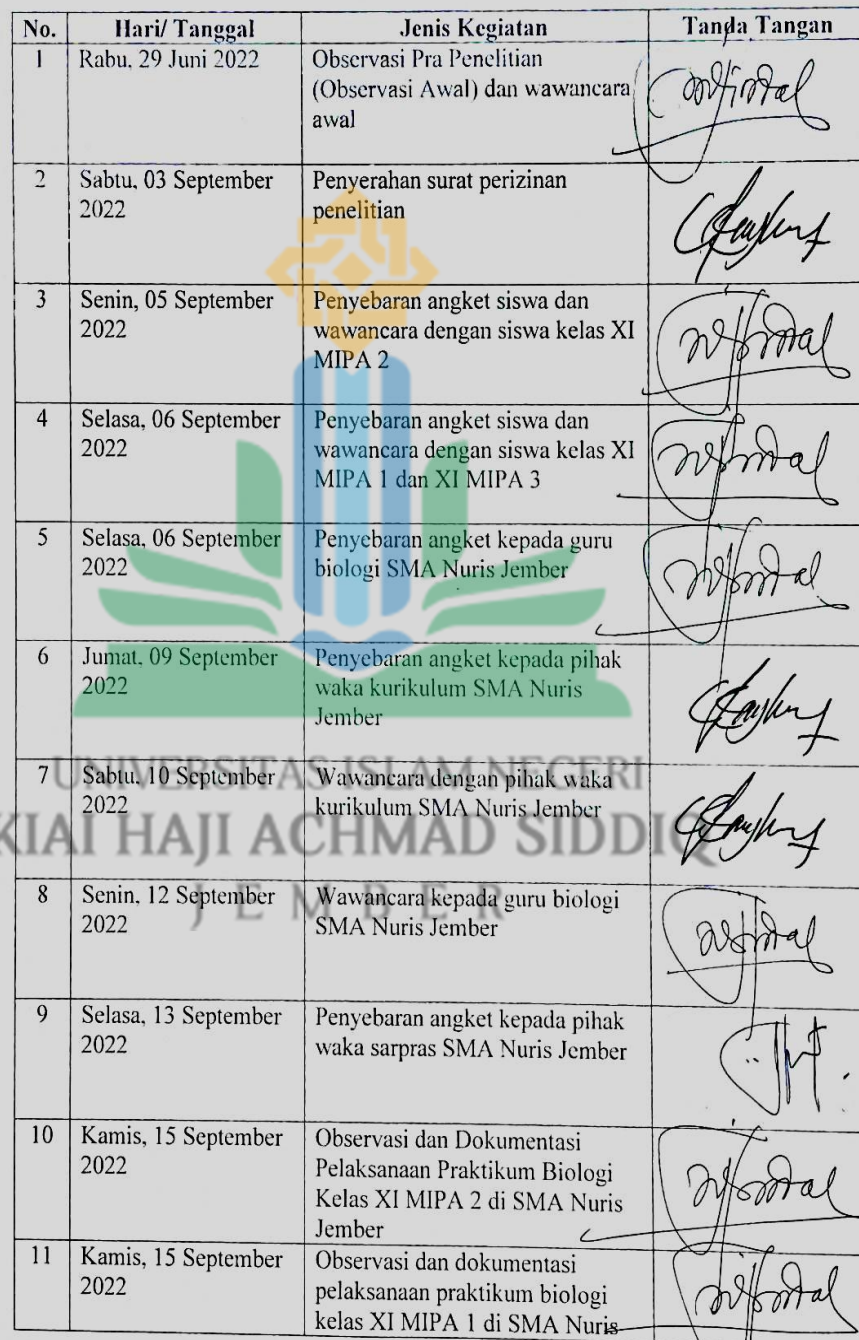 No. Hari/ Tanggal Jenis Kegiatan Tanda Tangan
1 Rabu, 29 Juni 2022 Observasi Pra Penelitian
(Observasi Awal) dan wawancara
awal
2 Sabtu, 03 September Penyerahan surat perizinan
2022 penelitian
3 Senin, 05 September Penyebaran angket siswa dan
2022 wawancara dengan siswa kelas XI
MIPA 2
4 Selasa, 06 September Penyebaran angket siswa dan
2022 wawancara dengan siswa kelas XI
MIPA 1 dan XI MIPA 3
5 Selasa, 06 September Penyebaran angket kepada guru
2022 biologi SMA Nuris Jember
6 Jumat, 09 September Penyebaran angket kepada pihak
2022 waka kurikulum SMA Nuris
Jember
UNIVERSITAS ISLAM NEGERI
7 Sabtu, 10 September Wawancara dengan pihak waka
2022 kurikulum SMA Nuris Jember
KIAI HAJI ACHMAD SIDDIQ
8 Senin, 12 September Wawancara kepada guru biologi
2022 SMA Nuris Jember
JEMBER
9 Selasa, 13 September Penyebaran angket kepada pihak
2022 waka sarpras SMA Nuris Jember
10 Kamis, 15 September Observasi dan Dokumentasi
2022 Pelaksanaan Praktikum Biologi
Kelas XI MIPA 2 di SMA Nuris
Jember
11 Kamis, 15 September Observasi dan dokumentasi
2022 pelaksanaan praktikum biologi
kelas XI MIPA 1 di SMA Nuris